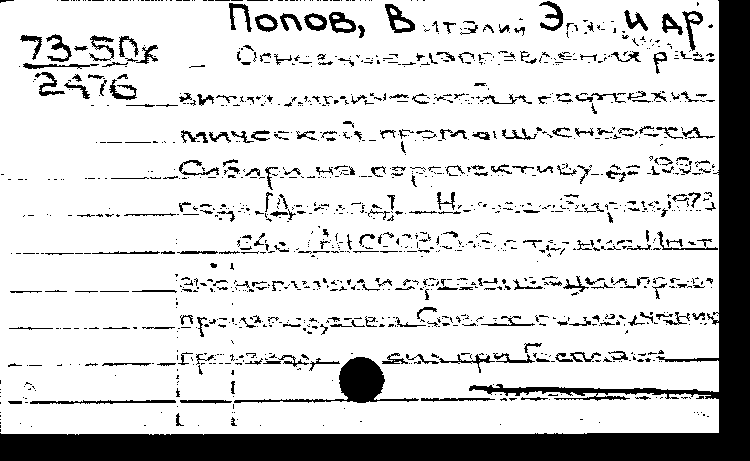 Попов, Виталий Эр и др.
73-50к
2476
Основные направления раз-
вития химической и нефтехи-
мической промышленности
Сибири на перспективу до 1990
года. [Доклад]. Новосибирск, 1973
64с. (АН СССР. Сиб. отд-ние. Ин-т
экономики и организации пром.
производства. Совет по изучению
производ. сил при Госплане